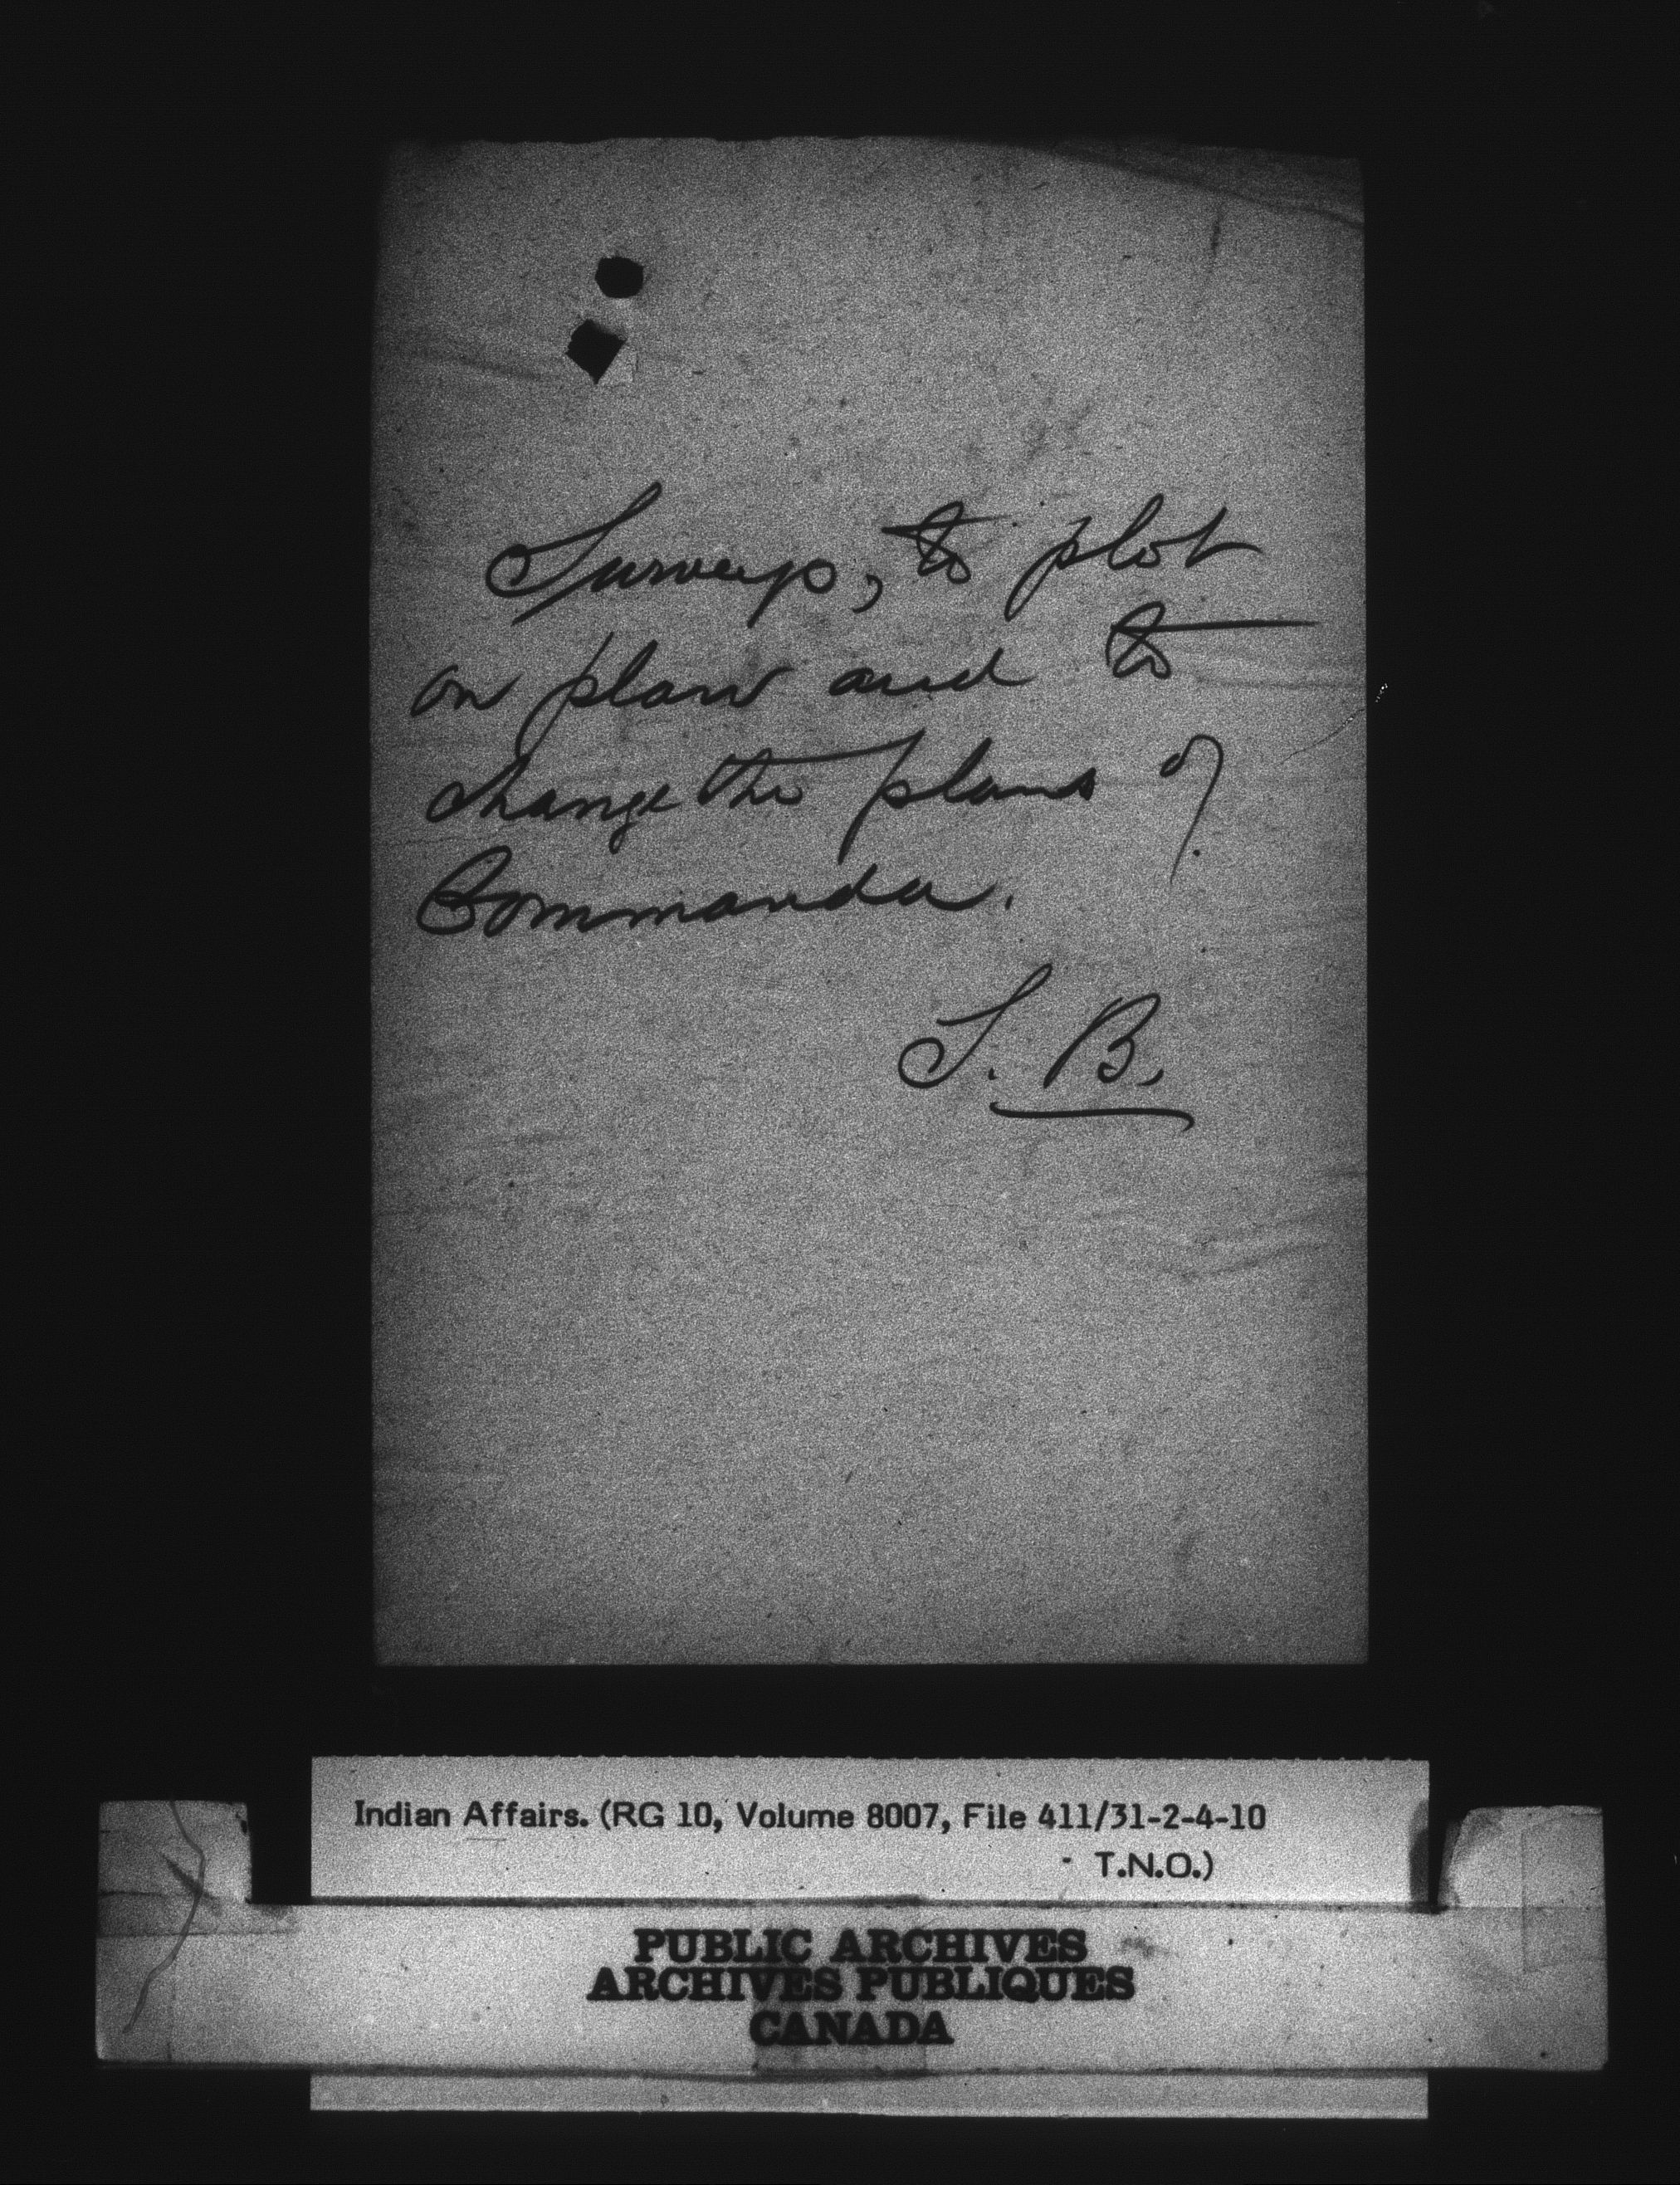 Surveys, to plot
on plan and to
change the plans of
Commanda.
S. B.
Indian Affairs. (RG 10, Volume 8007, File 411/31-2-4-10
- T.N.O.)
PUBLIC ARCHIVES
ARCHIVES PUBLIQUES
CANADA